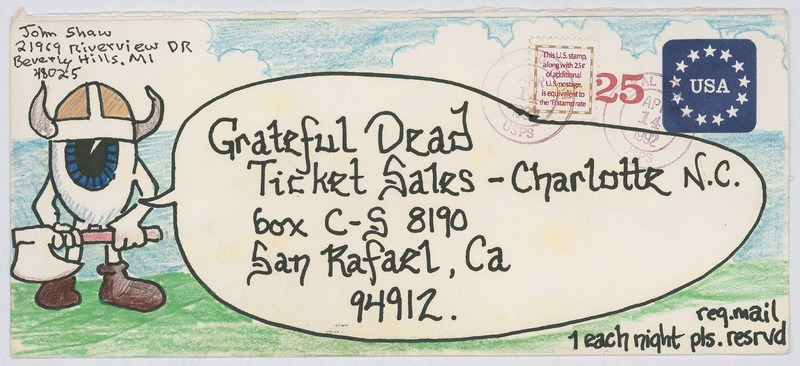 John Shaw
21969 Riverview DR
Beverly Hills, MI
48025
This U.S. stamp,
along with 25¢
of additional
U.S. postage,
is equivalent to
the 'F' stamp rate
25
USA
APR
14
1992
USPS
Grateful Dead
Ticket Sales - Charlotte N.C.
box C-S 8190
San Rafael, Ca
94912.
req.mail
1 each night pls. resrvd